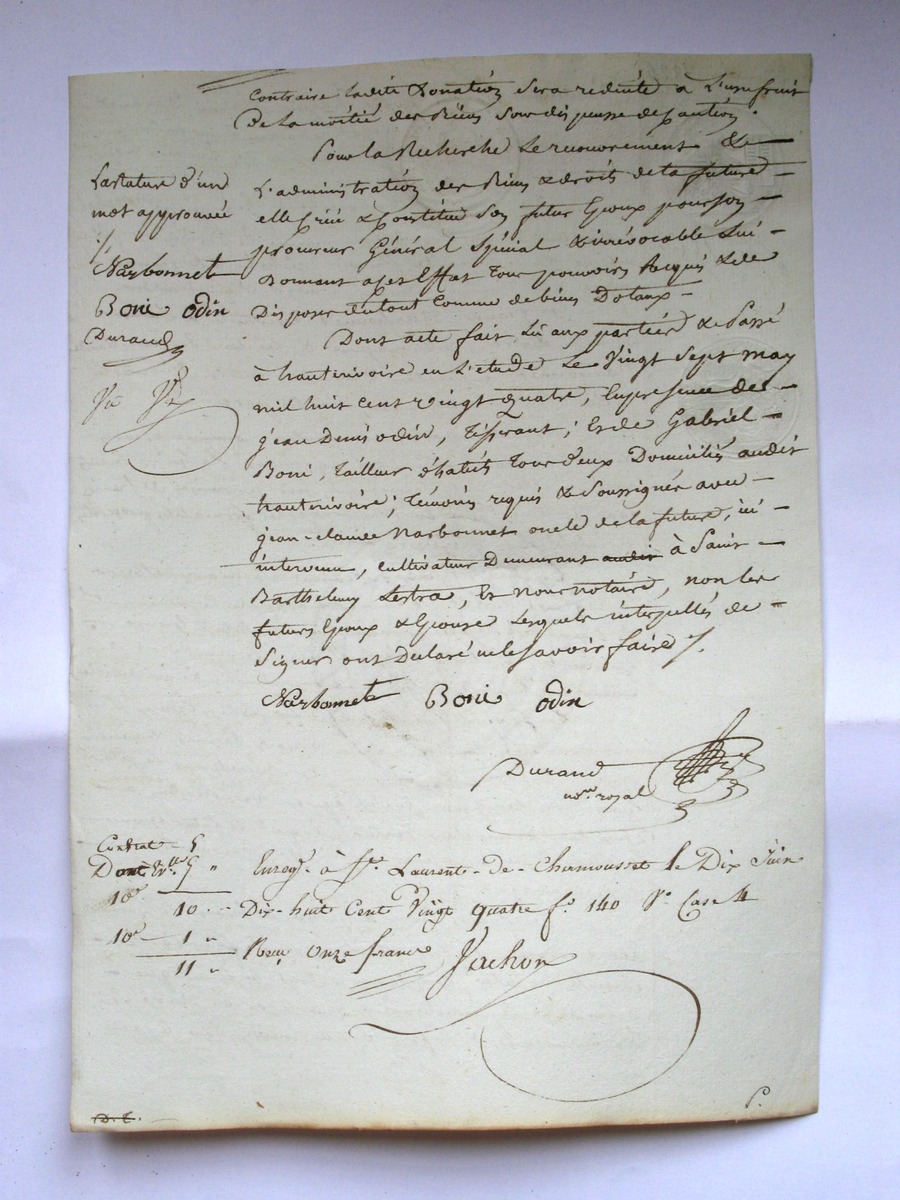 contraire ladite donation sera réduite à l'usufruit
de la moitié des biens sous dispense de caution.
Pour la Recherche le recouvrement &
L'administration des Biens & droits de la future
elle crée & constitue son futur Epoux pour son
procureur Général Spécial & irrévocable Lui
Donnant a cet Effet tous pouvoirs Requis & de
Disposer du tout comme de biens Dotaux
Dont acte fait Lu aux parties & Passé
à hauterivoire en L'etude Le Vingt Sept may
mil huit cent vingt quatre, En présence de
jean Denis odin, Tisserant; Et de Gabriel
Boni, Tailleur d'habits Tous deux Domiciliés audit
hauterivoire; Témoins requis & Soussignés avec
jean-claude Narbonnet oncle de la future, ici
intervenu, cultivateur Demeurant audit à Saint
Barthelemy Lestra, Et Nous notaire, non les
futurs Epoux & Epouse Lesquels interpellés de
Signer ont Déclaré ne le savoir faire /.
Narbonnet Boni odin
Durand
nore royal
La rature d'un
mot approuvée
/.
Narbonnet
Boni odin
Durand
Contrat 5
Dont 5 "
10
10e 1 "
11 "
Enregt à St Laurent-de-Chamousset le Dix Juin
Dix-huit Cent Vingt quatre fo 140 Vo Case 4
Reçu Onze francs Vachon
D. E.